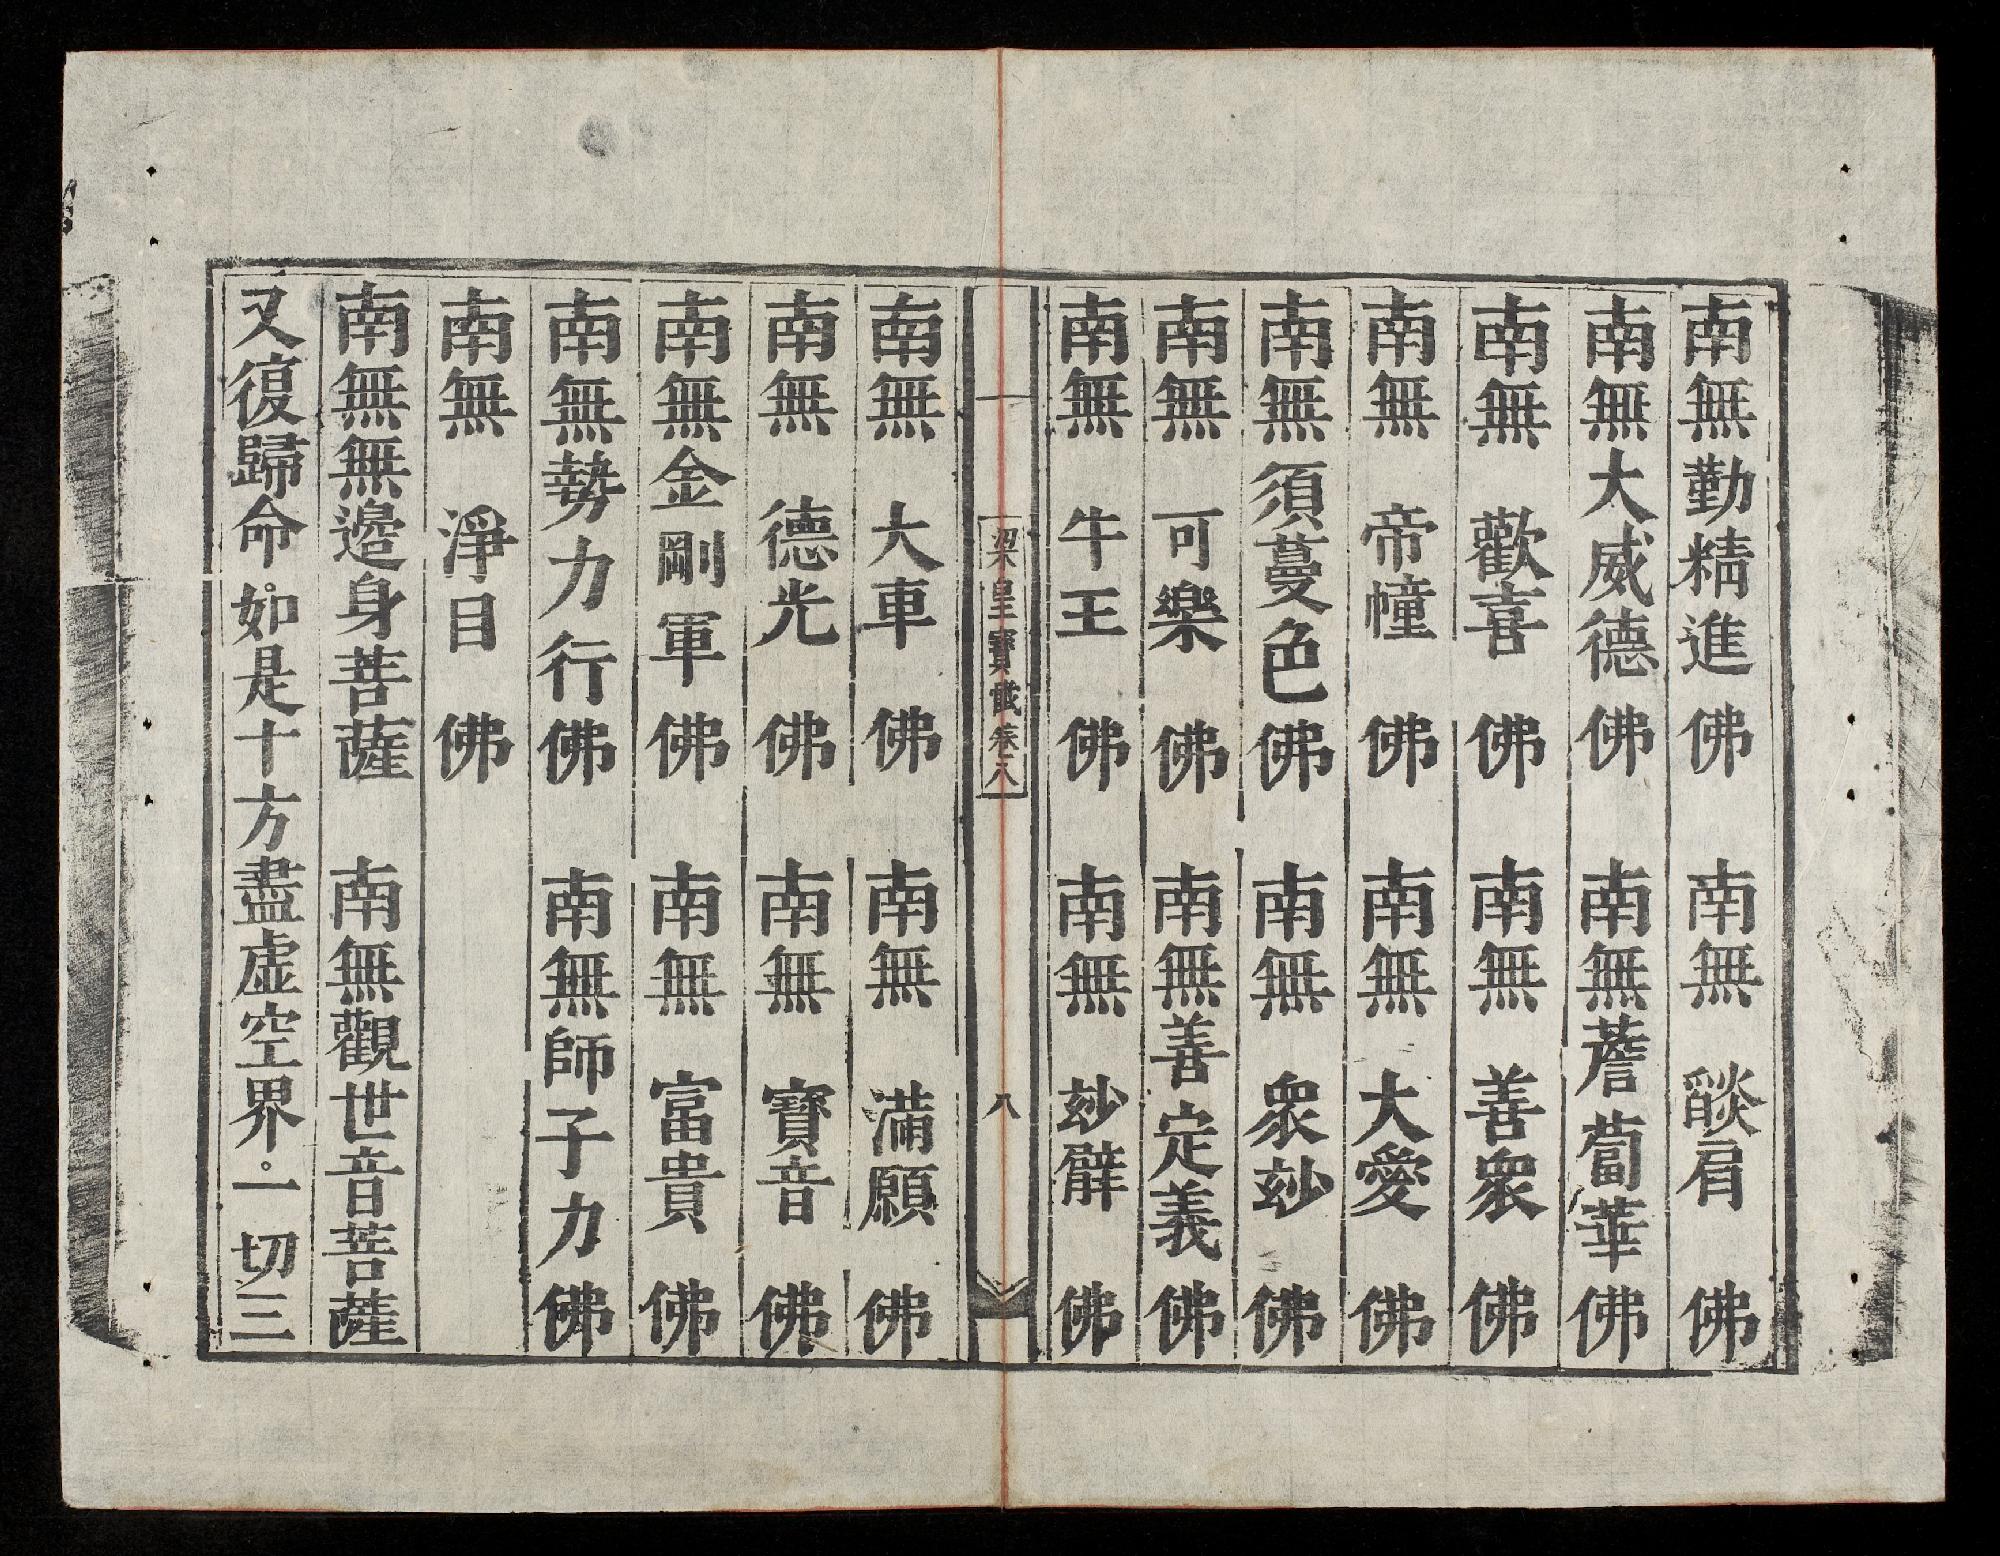 南無勤精進佛　南無燄肩佛
南無大威德佛　南無薝蔔華佛
南無歡喜佛　南無善眾佛
南無帝幢佛　南無大愛佛
南無須蔓色佛　南無眾玅佛
南無可樂佛　南無善定義佛
南無牛王佛　南無玅臂佛
梁皇寶懺卷八　八
南無大車佛　南無滿願佛
南無德光佛　南無寶音佛
南無金剛軍佛　南無富貴佛
南無勢力行佛　南無師子力佛
南無淨目佛
南無無邊身菩薩　南無觀世音菩薩
又復歸命。如是十方盡虛空界。一切三